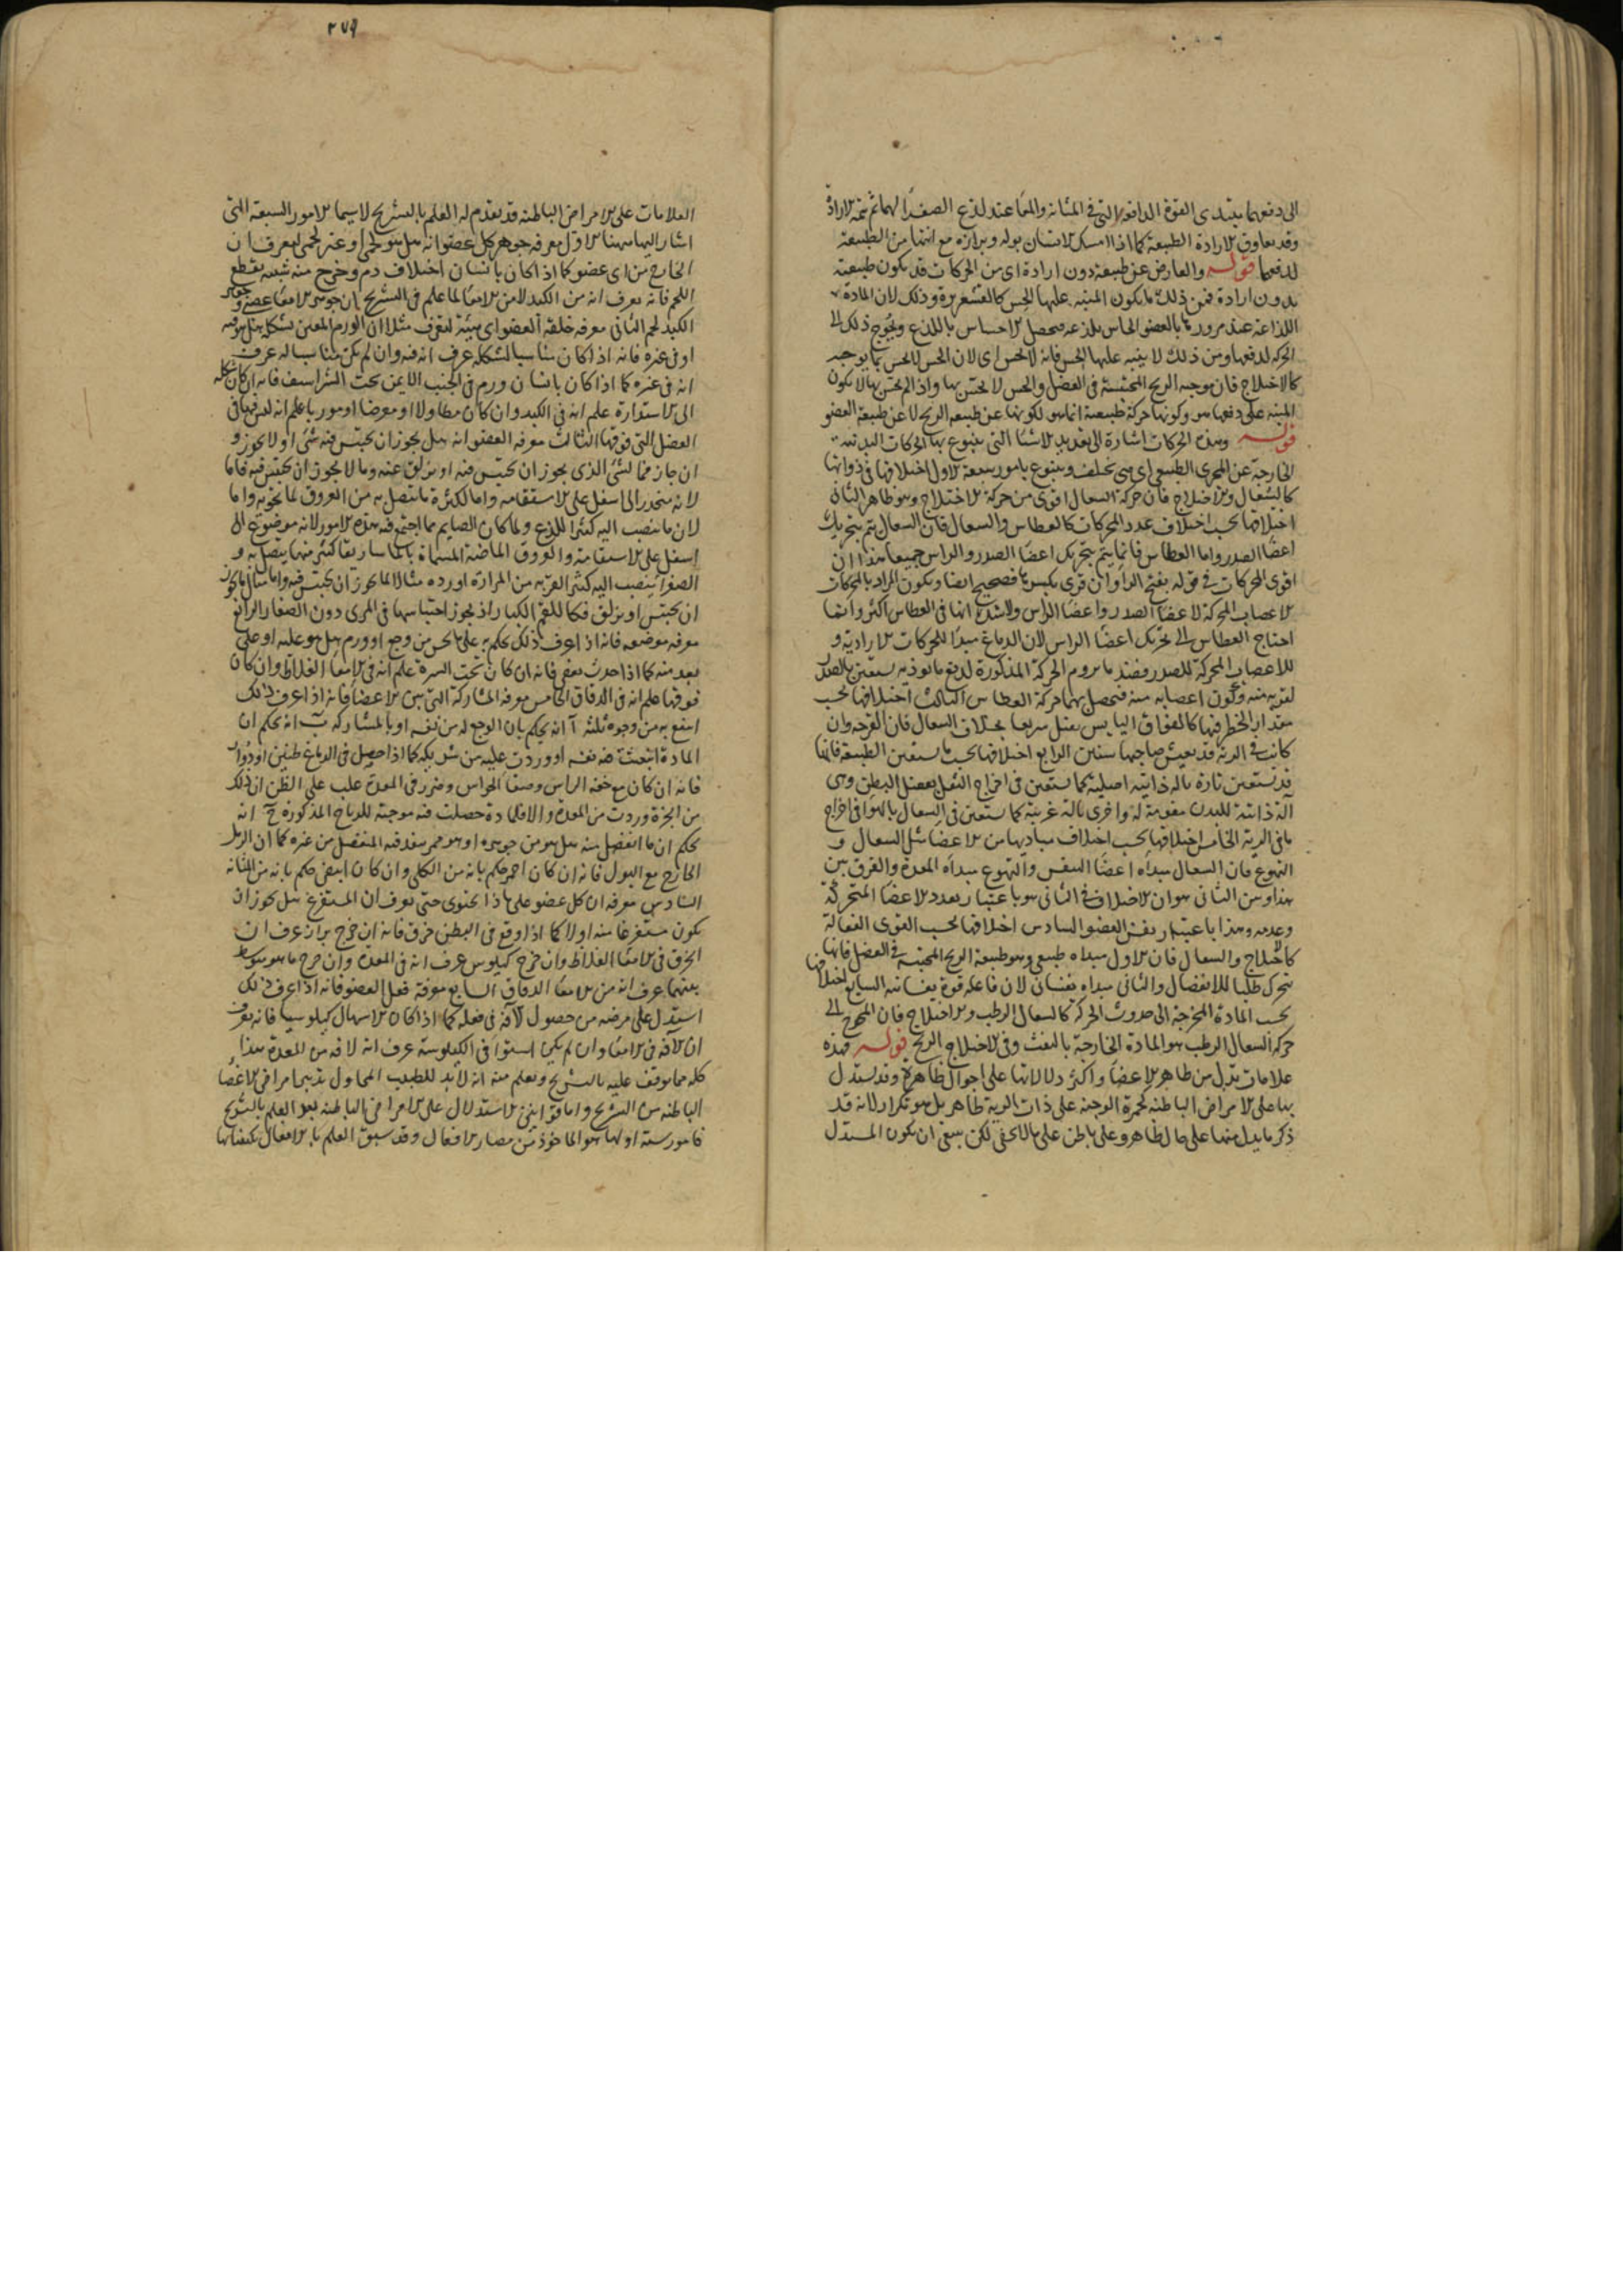 الى دفعهما يبتدى القوة الدافعة التى فى المثانة والمعا عند لذع الصفرا لهما ثم يتمه الارادة
وقد يعاوق الارادة الطبيعة كما اذا امسك الانسان بوله وبرازه مع انتها من الطبيعة
لدفعهما قوله والعارض عن طبيعة دون ارادة اى من الحركات قد يكون طبيعته
بدون ارادة فمن ذلك ما يكون المنبه عليها الحس كالقشعريرة وذلك لان المادة
اللذاعة عند مرورها بالعضو الحاس يلذعه فيحصل الاحساس باللذع ويحوج ذلك الى
الحركة لدفعها ومن ذلك لا ينبه عليها الحس فانه لا يحس اى لان الحس لا يحس بما يوجبه
كالاختلاج فان موجبه الريح المحتبسة فى العضل والحس لا يحس بها واذا لم يحس بها لا يكون
المنبه على دفعها هو وكونها حركة طبيعية انما هو لكونها عن طبيعة الريح لا عن طبيعة العضو
قوله وهذه الحركات اشارة الى تعديد الاشيا التى يتنوع بها الحركات البدنية
الخارجة عن المجرى الطبيعى اى هى تختلف ويتنوع بامور سبعة الاول اختلافها فى ذواتها
كالسعال والاختلاج فان حركة السعال اقوى من حركة الاختلاج وهو ظاهر الثانى
اختلافها بحسب اختلاف عدد المحركات كالعطاس والسعال فان السعال يتم بتحريك
اعضا الصدر واما العطاس فانما يتم بتحريك اعضا الصدر والراس جميعا هذا ان
اقرى المحركات فى قوله بفتح الرا وان قرى بكسرها فصحيح ايضا ويكون المراد بالمحركات
الاعصاب المحركة لاعضا الصدر واعضا الراس ولا شك انها فى العطاس اكثر وانما
احتاج العطاس الى تحريك اعضا الراس لان الدماغ مبدا للحركات الارادية و
للاعصاب المحركة للصدر فعند ما يروم الحركة المذكورة لدفع ما يوذيه يستعين بالصدر
لقربه منه وكون اعصابه منه فيحصل بهما حركة العطاس الثالث اختلافها بحسب
مقدار الخطر فيها كالفواق اليابس يقتل سريعا بخلاف السعال فان القرحة وان
كانت فى الرية قد يعيش صاحبها سنين الرابع اختلافها بحسب ما يستعين الطبيعة فانها
قد تستعين تارة بالة ذاتية اصلية كما يستعين فى اخراج الثفل بعضل البطن وهى
الة ذاتية للبدن مقومة له واخرى بالة غريبة كما يستعين فى السعال بالهوا فى اخراج
ما فى الرية الخامس اختلافها بحسب اختلاف مباديها من الاعضا مثل السعال و
التهوع فان السعال مبداه اعضا النفس والتهوع مبداه المعدة والفرق بين
هذا وبين الثانى هو ان الاختلاف فى الثانى هو باعتبار تعدد الاعضا المتحركة
وعدمه وهذا باعتبار نفس العضو السادس اختلافها بحسب القوى الفعالة
كالاختلاج والسعال فان الاول مبداه طبيعى وهو طبيعة الريح المحتبسة فى العضل فانها
يتحرك طلبا للانفصال والثانى مبداه نفسانى لان فاعله قوة نفسانية السابع اختلافها
بحسب المادة المخرجة الى حدوث الحركة كالسعال الرطب والاختلاج فان المحوج الى
حركة السعال الرطب هو المادة الخارجة بالنفث وفى الاختلاج الريح قوله فهذه
علامات يدل من ظاهر الاعضا واكثر دلالاتها على احوال ظاهرة وقد يستدل
بها على الامراض الباطنة كحمرة الوجنة على ذات الرية ظاهر بل هو تكرار لانه قد
ذكر ما يدل منها على حال ظاهر وعلى باطن على ما لا يخفى لكن ينبغى ان يكون المستدل
٢٧٩
العلامات على الامراض الباطنة قد تقدم له العلم بالتشريح لا سيما الامور السبعة التى
اشار اليها ههنا الاول معرفة جوهر كل عضو انه هل هو لحمى او غير لحمى ليعرف ان
الخارج من اى عضو كما اذا كان بانسان اختلاف دم وخرج منه شبه بقطع
اللحم فانه يعرف انه من الكبد لا من الامعا لما علم فى التشريح ان جوهر الامعا عصبى وجوهر
الكبد لحم الثانى معرفة خلقة العضو اى هيئته ليعرف مثلا ان الورم المعين بشكله هل هو فيه
او فى غيره فانه اذا كان مناسبا لشكله عرف انه فيه وان لم يكن مناسبا له عرف
انه فى غيره كما اذا كان بانسان ورم فى الجنب الايمن تحت الشراسيف فانه ان كان شكله
الى الاستدارة علم انه فى الكبد وان كان مطاولا او معرضا او موربا علم انه ليس فيها فى
العضل التى فوقها الثالث معرفة العضو انه هل يجوز ان يحتبس فيه شى او لا يجوز و
ان جاز فما الشى الذى يجوز ان يحتبس فيه او يزلق عنه وما لا يجوز ان يحتبس فيه فاما
لانه منحدر الى اسفل على الاستقامة واما لكثرة ما يتصل به من العروق لما يحويه واما
لان ما ينصب اليه كثير اللذع ولما كان الصايم مما اجتمع فيه هذه الامور لانه موضوع الى
اسفل على الاستقامة والعروق الماضة المسماة بالماساريقا كثير منها يتصل به و
الصفرا ينصب اليه كثيرا لقربه من المرارة اورده مثالا لما يجوز ان يحتبس فيه واما مثال ما يجوز
ان يحتبس او يزلق فكاللقم الكبار اذ يجوز احتباسها فى المرى دون الصغار الرابع
معرفة موضعه فانه اذا عرف ذلك يحكم به على ما يحس من وجع او ورم هل هو عليه او على
بعد منه كما اذا حدث مغص فانه ان كان تحت السرة علم انه فى الامعا الغلاظ وان كان
فوقها علم انه فى الدقاق الخامس معرفة المشاركة التى بين الاعضا فانه اذا عرف ذلك
انتفع به من وجوه ثلثة آ انه يحكم بان الوجع له من نفسه او بالمشاركة ب انه يحكم ان
المادة انبعثت منه نفسه او وردت عليه من شريكه كما اذا حصل فى الدماغ طنين او دوار
فانه ان كان مع خفة الراس وصفا الحواس وضرر فى المعدة غلب على الظن ان ذلك
من ابخرة وردت من المعدة والا فلمادة حصلت فيه موجبة للرياح المذكورة ج انه
يحكم ان ما انفصل منه هل هو من جوهره او هو ممر ينفذ فيه المنفصل من غيره كما ان الرمل
الخارج مع البول فانه ان كان احمر حكم بانه من الكلى وان كان ابيض حكم بانه من المثانة
السادس معرفة ان كل عضو على ماذا يحتوى حتى يعرف ان المستفرغ هل يجوز ان
يكون مستفرغا منه او لا كما اذا وقع فى البطن خرق فانه ان خرج براز عرف ان
الخرق فى الامعا الغلاظ وان خرج كيلوس عرف انه فى المعدة وان خرج ما هو متوسط
بينهما عرف انه من الامعا الدقاق السابع معرفة فعل العضو فانه اذا عرف ذلك
استدل على مرضه من حصول الافة فى فعله كما اذا كان الاسهال كيلوسيا فانه يعرف
ان الافة فى الامعا وان لم يكن استوا فى الكيلوسية عرف انه لافة من المعدة هذا
كله مما يوقف عليه بالتشريح ويعلم منه انه لا بد للطبيب المحاول تدبير امراض الاعضا
الباطنة من التشريح واما قوانين الاستدلال على الامراض الباطنة بعد العلم بالتشريح
فامور ستة اولها هو الماخوذ من مضار الافعال وقد سبق العلم بالافعال بكيفياتها